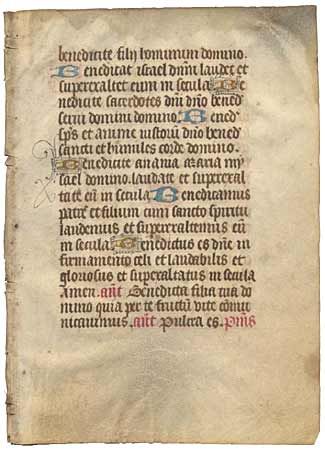 benedicite filij hominum domino.
Benedicat israel dnm laudet et
superexaltet eum in secula Be
nedicite sacerdotes dni dno bened
serui domini domino. Bened
sps et anime iustoru dno bened
sancti et humiles corde domino.
Benedicite anania azaria my
sael domino. laudate et superexal
tate eu in secula Benedicamus
patre et filium cum sancto spiritu
laudemus et superexaltemus eu
in secula Benedictus es dne in
firmamento celi et laudabilis et
gloriosus et superexaltatus in secula
Amen. ant Benedicta filia tua do
mino quia per te fructu vite comu
nicauimus. ant Pulcra es. Pms